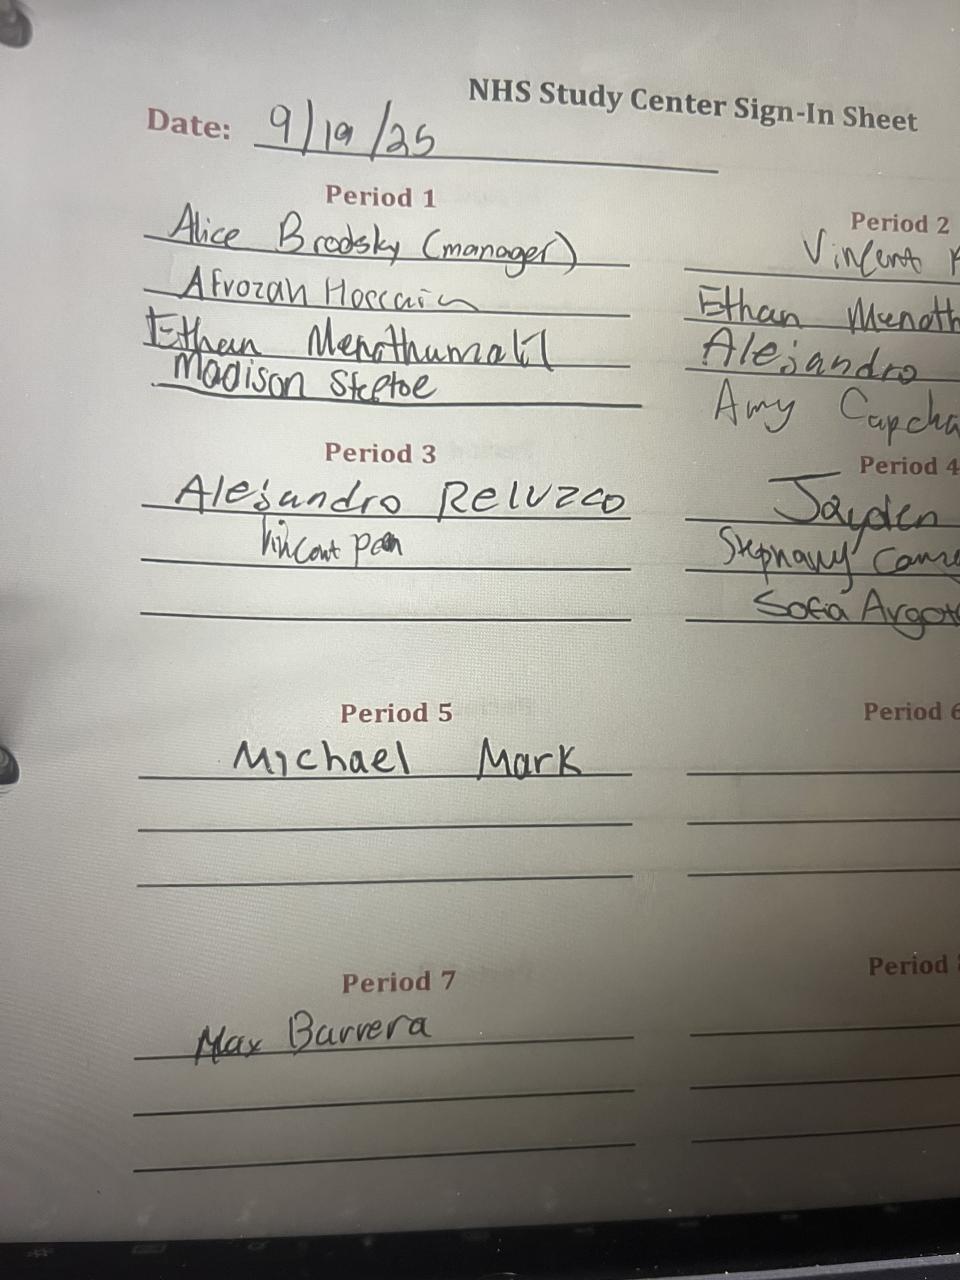 NHS Study Center Sign-In Sheet
Date: 9/19/25
Period 1
Alice Brodsky (manager)
Afrozah Hossain
Ethan
Madison Steptoe
Period 2
Vincent P
Ethan Menoth
Alejandro
Amy Capcha
Period 3
Alejandro Reluzco
Vincent
Period 4
Jayden
Stephany
Sofia Argot
Period 5
Michael Mark
Period 6
Period 7
Max Barrera
Period